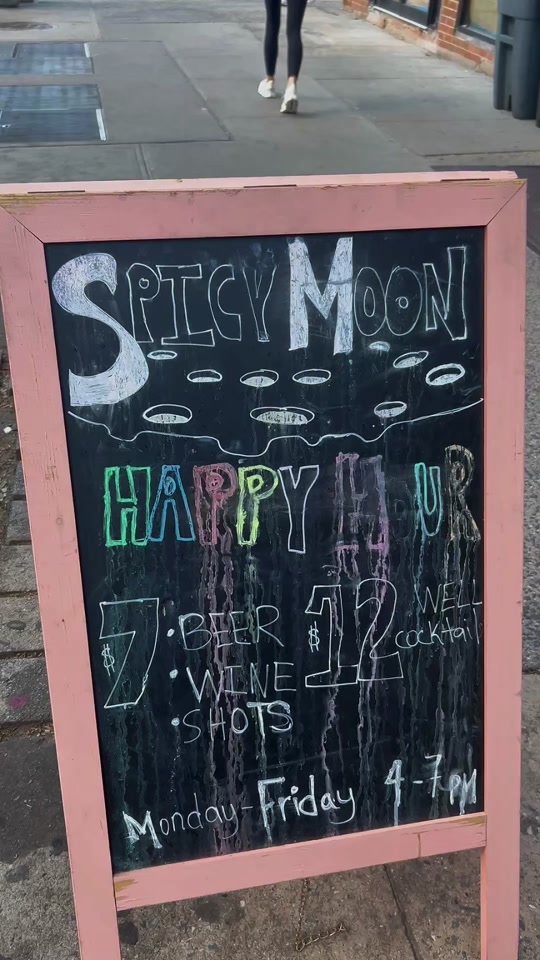 SPICY MOON
HAPPY HOUR
$7
• BEER
• WINE
• SHOTS
$12 WELL
cocktail
Monday-Friday 4-7 PM